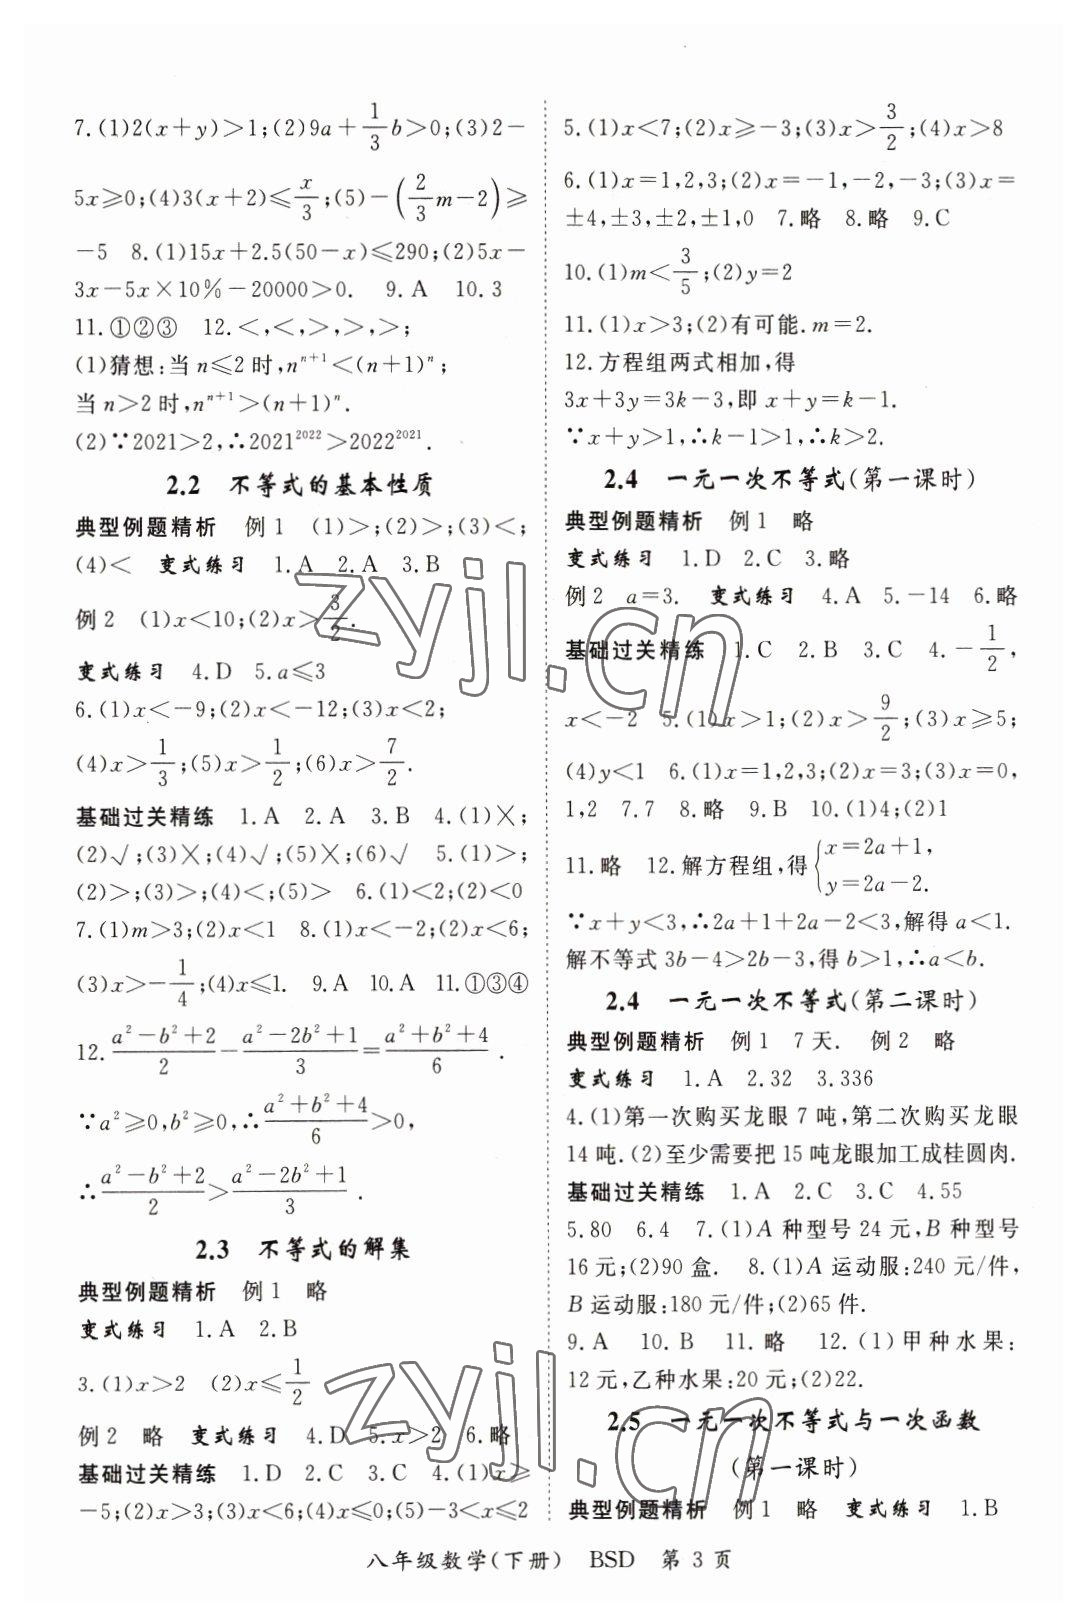 7.(1)2(x+y)>1;(2)9a+1/3b>0;(3)2-
5x≥0;(4)3(x+2)≤x/3;(5)-(2/3m-2)≥
-5 8.(1)15x+2.5(50-x)≤290;(2)5x-
3x-5x×10%-20000>0. 9.A 10.3
11.①②③ 12.<,<,>,>,>;
(1)猜想:当n≤2时,n^{n+1}<(n+1)^n;
当n>2时,n^{n+1}>(n+1)^n.
(2)∵2021>2,∴2021^{2022}>2022^{2021}.
2.2 不等式的基本性质
典型例题精析 例1 (1)>;(2)>;(3)<;
(4)< 变式练习 1.A 2.A 3.B
例2 (1)x<10;(2)x>3/2.
变式练习 4.D 5.a≤3
6.(1)x<-9;(2)x<-12;(3)x<2;
(4)x>1/3;(5)x>1/2;(6)x>7/2.
基础过关精练 1.A 2.A 3.B 4.(1)╳;
(2)√;(3)╳;(4)√;(5)╳;(6)√ 5.(1)>;
(2)>;(3)>;(4)<;(5)> 6.(1)<2;(2)<0
7.(1)m>3;(2)x<1 8.(1)x<-2;(2)x<6;
(3)x>-1/4;(4)x≤1. 9.A 10.A 11.①③④
12.(a²-b²+2)/2-(a²-2b²+1)/3=(a²+b²+4)/6.
∵a²≥0,b²≥0,∴(a²+b²+4)/6>0,
∴(a²-b²+2)/2>(a²-2b²+1)/3.
2.3 不等式的解集
典型例题精析 例1 略
变式练习 1.A 2.B
3.(1)x>2 (2)x≤1/2
例2 略 变式练习 4.D 5.x>2 6.略
基础过关精练 1.D 2.C 3.C 4.(1)x≥
-5;(2)x>3;(3)x<6;(4)x≤0;(5)-3<x≤2
5.(1)x<7;(2)x≥-3;(3)x>3/2;(4)x>8
6.(1)x=1,2,3;(2)x=-1,-2,-3;(3)x=
±4,±3,±2,±1,0 7.略 8.略 9.C
10.(1)m<3/5;(2)y=2
11.(1)x>3;(2)有可能.m=2.
12.方程组两式相加,得
3x+3y=3k-3,即x+y=k-1.
∵x+y>1,∴k-1>1,∴k>2.
2.4 一元一次不等式(第一课时)
典型例题精析 例1 略
变式练习 1.D 2.C 3.略
例2 a=3. 变式练习 4.A 5.-14 6.略
基础过关精练 1.C 2.B 3.C 4.-1/2,
x<-2 5.(1)x>1;(2)x>9/2;(3)x≥5;
(4)y<1 6.(1)x=1,2,3;(2)x=3;(3)x=0,
1,2 7.7 8.略 9.B 10.(1)4;(2)1
11.略 12.解方程组,得{x=2a+1,
y=2a-2.
∵x+y<3,∴2a+1+2a-2<3,解得a<1.
解不等式3b-4>2b-3,得b>1,∴a<b.
2.4 一元一次不等式(第二课时)
典型例题精析 例1 7天. 例2 略
变式练习 1.A 2.32 3.336
4.(1)第一次购买龙眼7吨,第二次购买龙眼
14吨.(2)至少需要把15吨龙眼加工成桂圆肉.
基础过关精练 1.A 2.C 3.C 4.55
5.80 6.4 7.(1)A种型号24元,B种型号
16元;(2)90盒. 8.(1)A运动服:240元/件,
B运动服:180元/件;(2)65件.
9.A 10.B 11.略 12.(1)甲种水果:
12元,乙种水果:20元;(2)22.
2.5 一元一次不等式与一次函数
(第一课时)
典型例题精析 例1 略 变式练习 1.B
八年级数学(下册) BSD 第3页
zyjl.cn
zyjl.cn